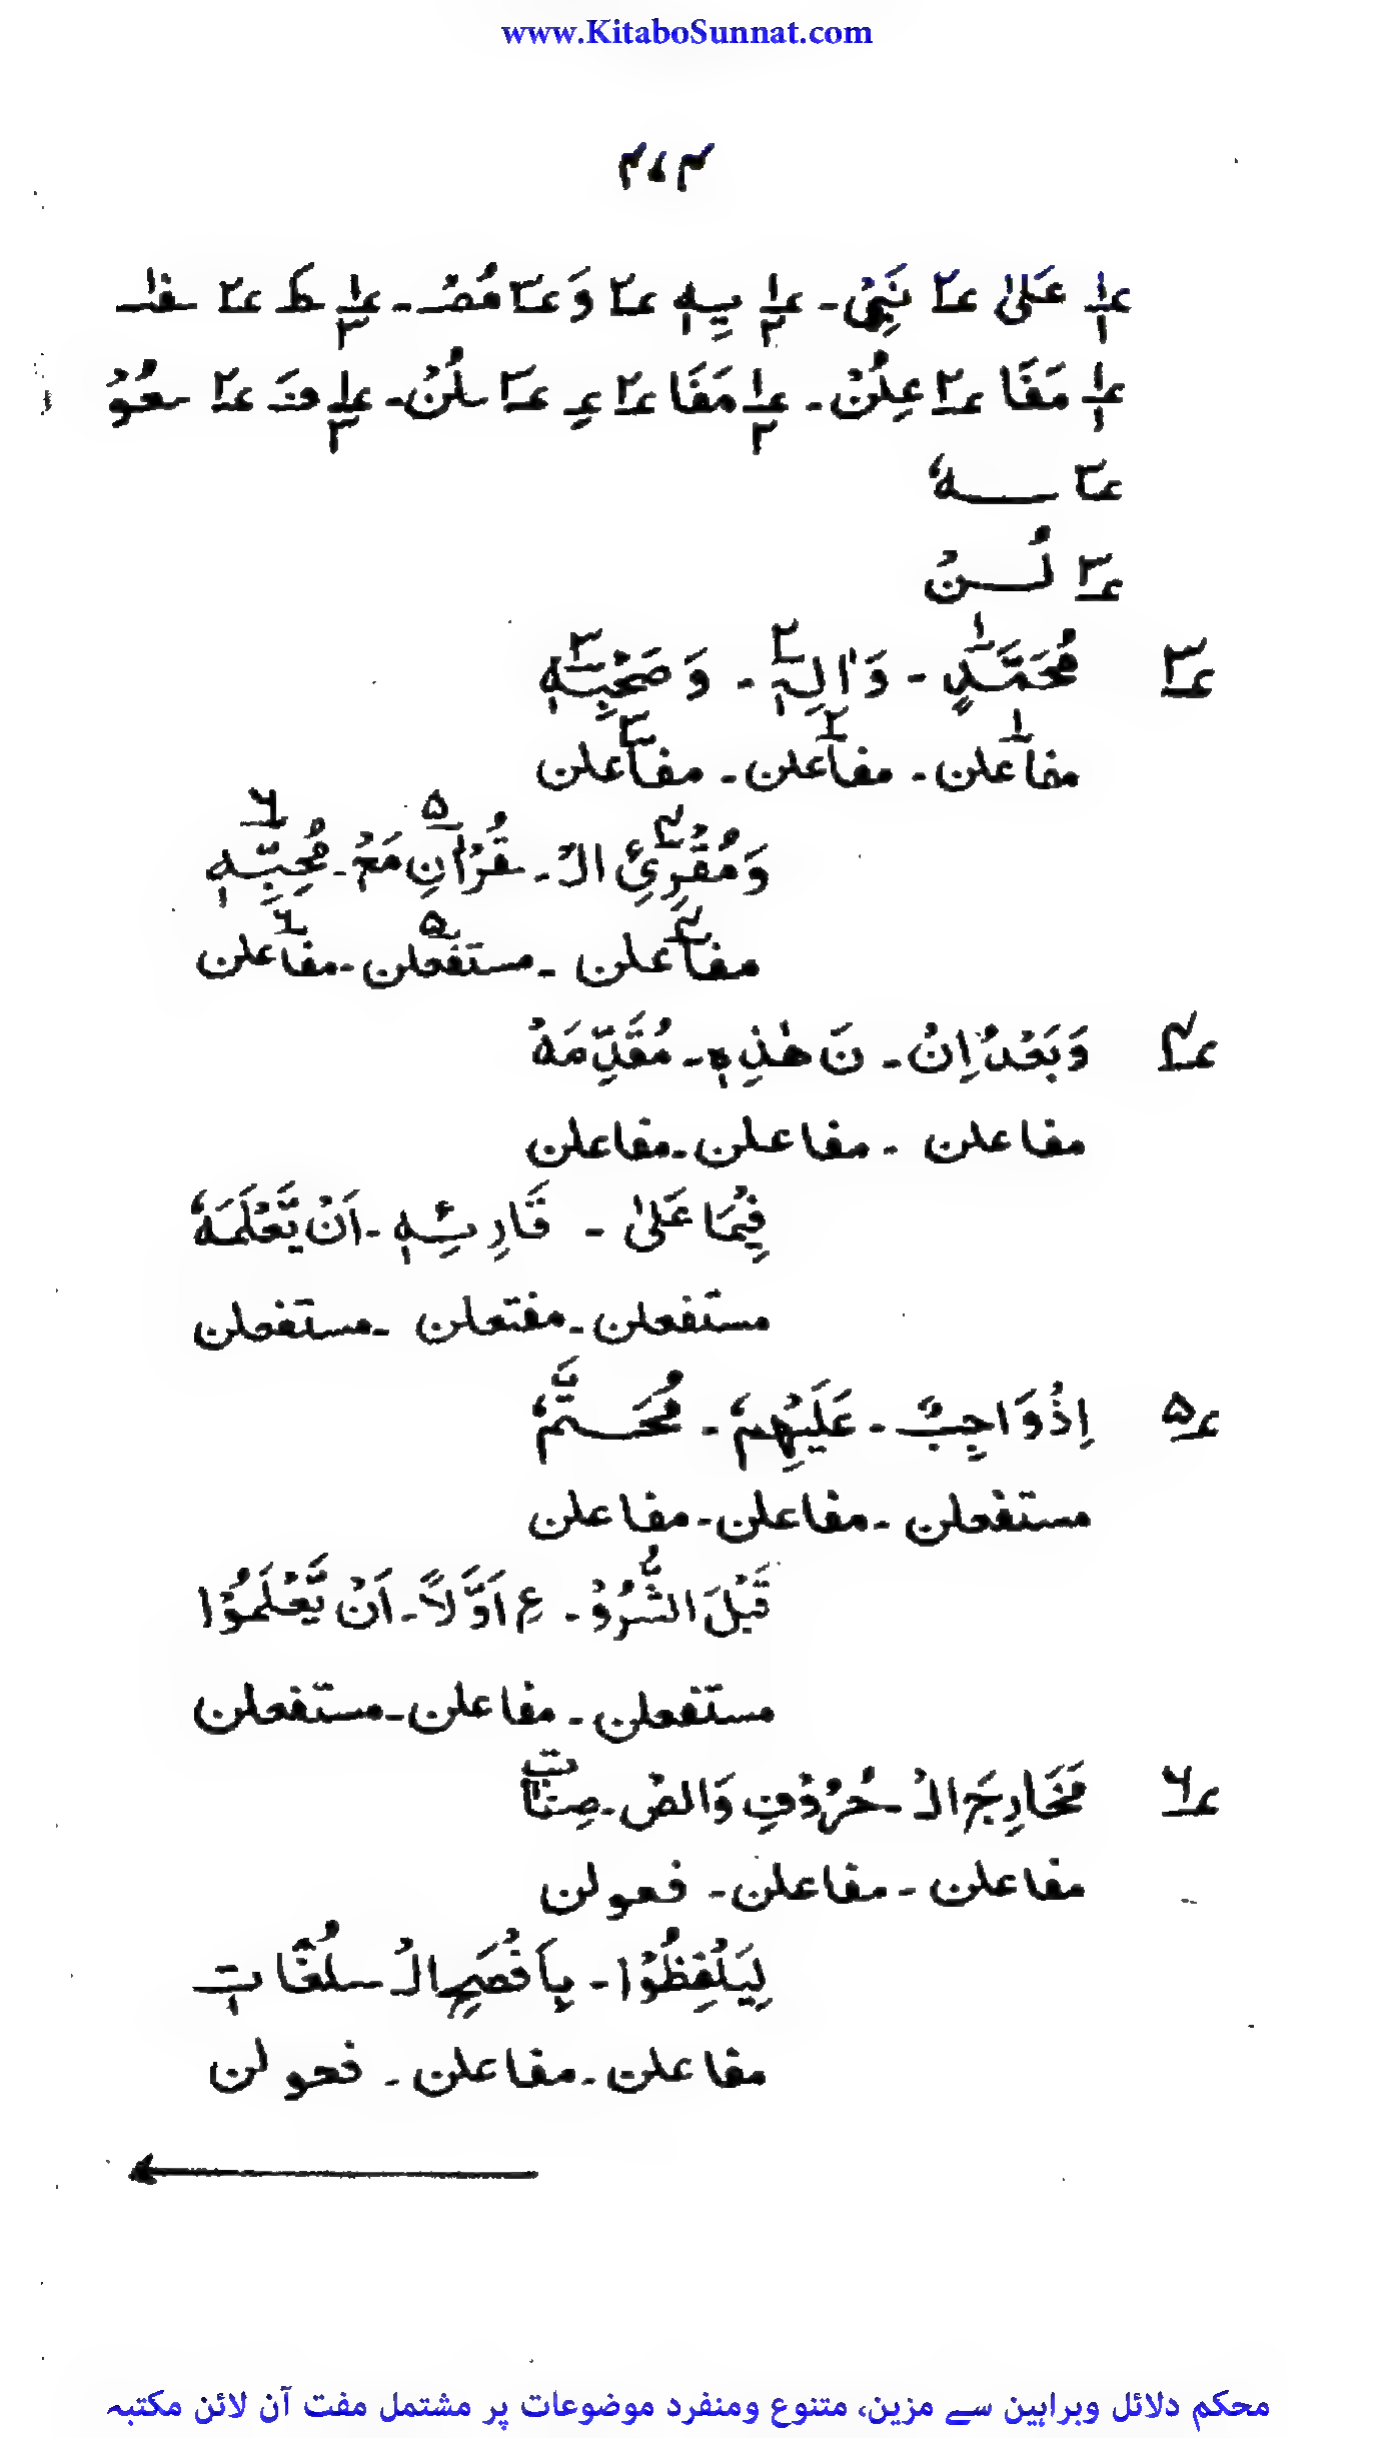 www.KitaboSunnat.com
۴۰۴
؏۱/۱ عَلٰی ؏۲ نَبِیْ۔ ؏۱/۲ یِہٖ ؏۲ وَ ؏۳ مُصْ۔ ؏۱/۳ طَ ؏۲ فٰ
؏۱/۱ مَفَا ؏۲ عِلُنْ۔ ؏۱/۲ مَفَا ؏۲ عِ ؏۳ لُنْ۔ ؏۱/۳ فَ ؏۲ عُوْ
؏۳ ہٗ
؏۳ لُنْ
؏۳ مُحَمَّدٍ۱ ۔ وَاٰلِہٖ۲ ۔ وَصَحْبِہٖ۳
مفاعلن۱ ۔ مفاعلن۲ ۔ مفاعلن۳
وَمُقْرِئِ الْ۴ ۔ قُرْاٰنِ مَعْ۵ ۔ مُحِبِّہٖ۶
مفاعلن۴ ۔ مستفعلن۵ ۔ مفاعلن۶
؏۴ وَبَعْدُ اِنْ ۔ نَ ھٰذِہٖ ۔ مُقَدِّمَہْ
مفاعلن ۔ مفاعلن ۔ مفاعلن
فِیْمَا عَلٰی ۔ قَارِئِہٖ ۔ اَنْ یَّعْلَمَہٗ
مستفعلن ۔ مفتعلن ۔ مستفعلن
؏۵ اِذْ وَاجِبٌ ۔ عَلَیْہِمٗ ۔ مُحَتَّمٗ
مستفعلن ۔ مفاعلن ۔ مفاعلن
قَبْلَ الشُّرُوْ ۔ عِ اَوَّلاً ۔ اَنْ یَّعْلَمُوْا
مستفعلن ۔ مفاعلن ۔ مستفعلن
؏۶ مَخَارِجَ الْ ۔ حُرُوْفِ وَالصْ ۔ صِفَاتِ
مفاعلن ۔ مفاعلن ۔ فعولن
لِیَلْفِظُوْا ۔ بِاَفْصَحِ الْ ۔ لُغَاتِ
مفاعلن ۔ مفاعلن ۔ فعولن
محکم دلائل وبراہین سے مزین، متنوع ومنفرد موضوعات پر مشتمل مفت آن لائن مکتبہ